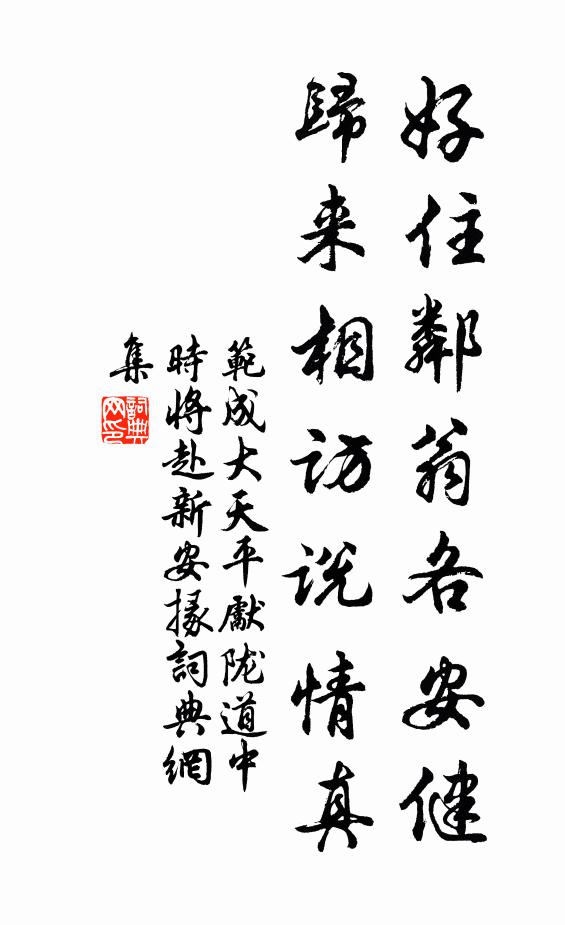 好住鄰翁各安健
歸来相訪説情真
範成大天平獻陇道中
時将赴新安掾詞典網
集
詞典
网印